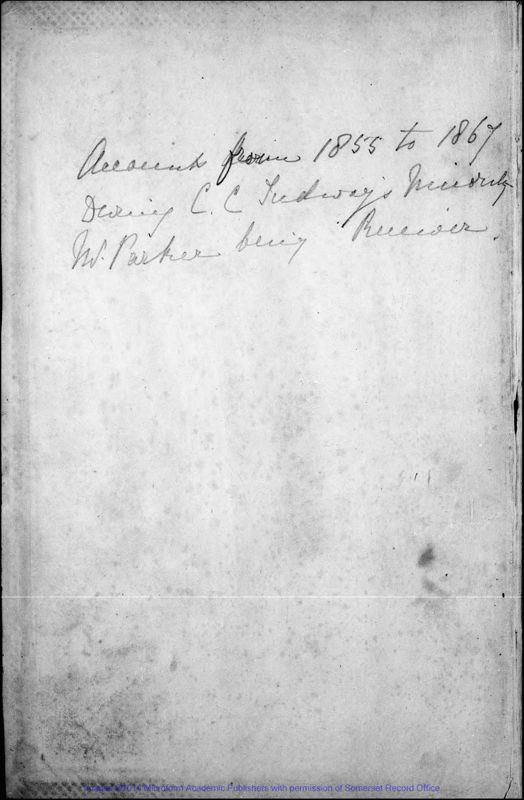 Accounts from 1855 to 1867
During C. C Tudway's Minority
Mr. Parker being Receiver.
Images ©2014 Microform Academic Publishers with permission of Somerset Record Office